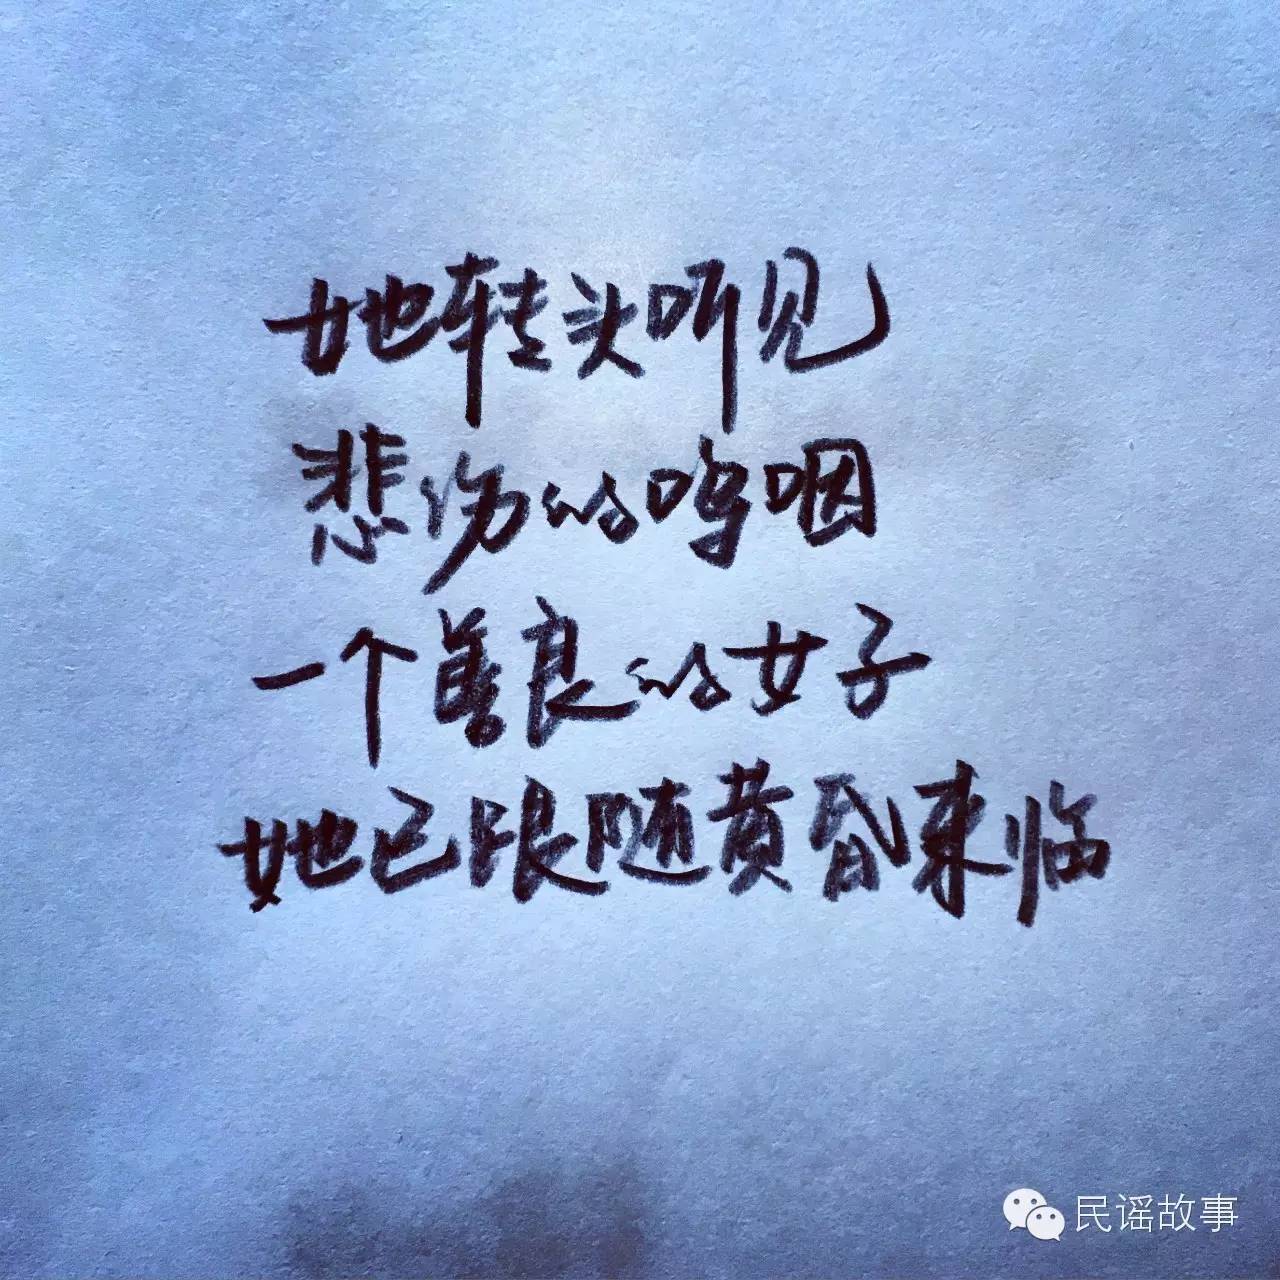 她转头听见
悲伤的呜咽
一个善良的女子
她已跟随黄昏来临
民谣故事